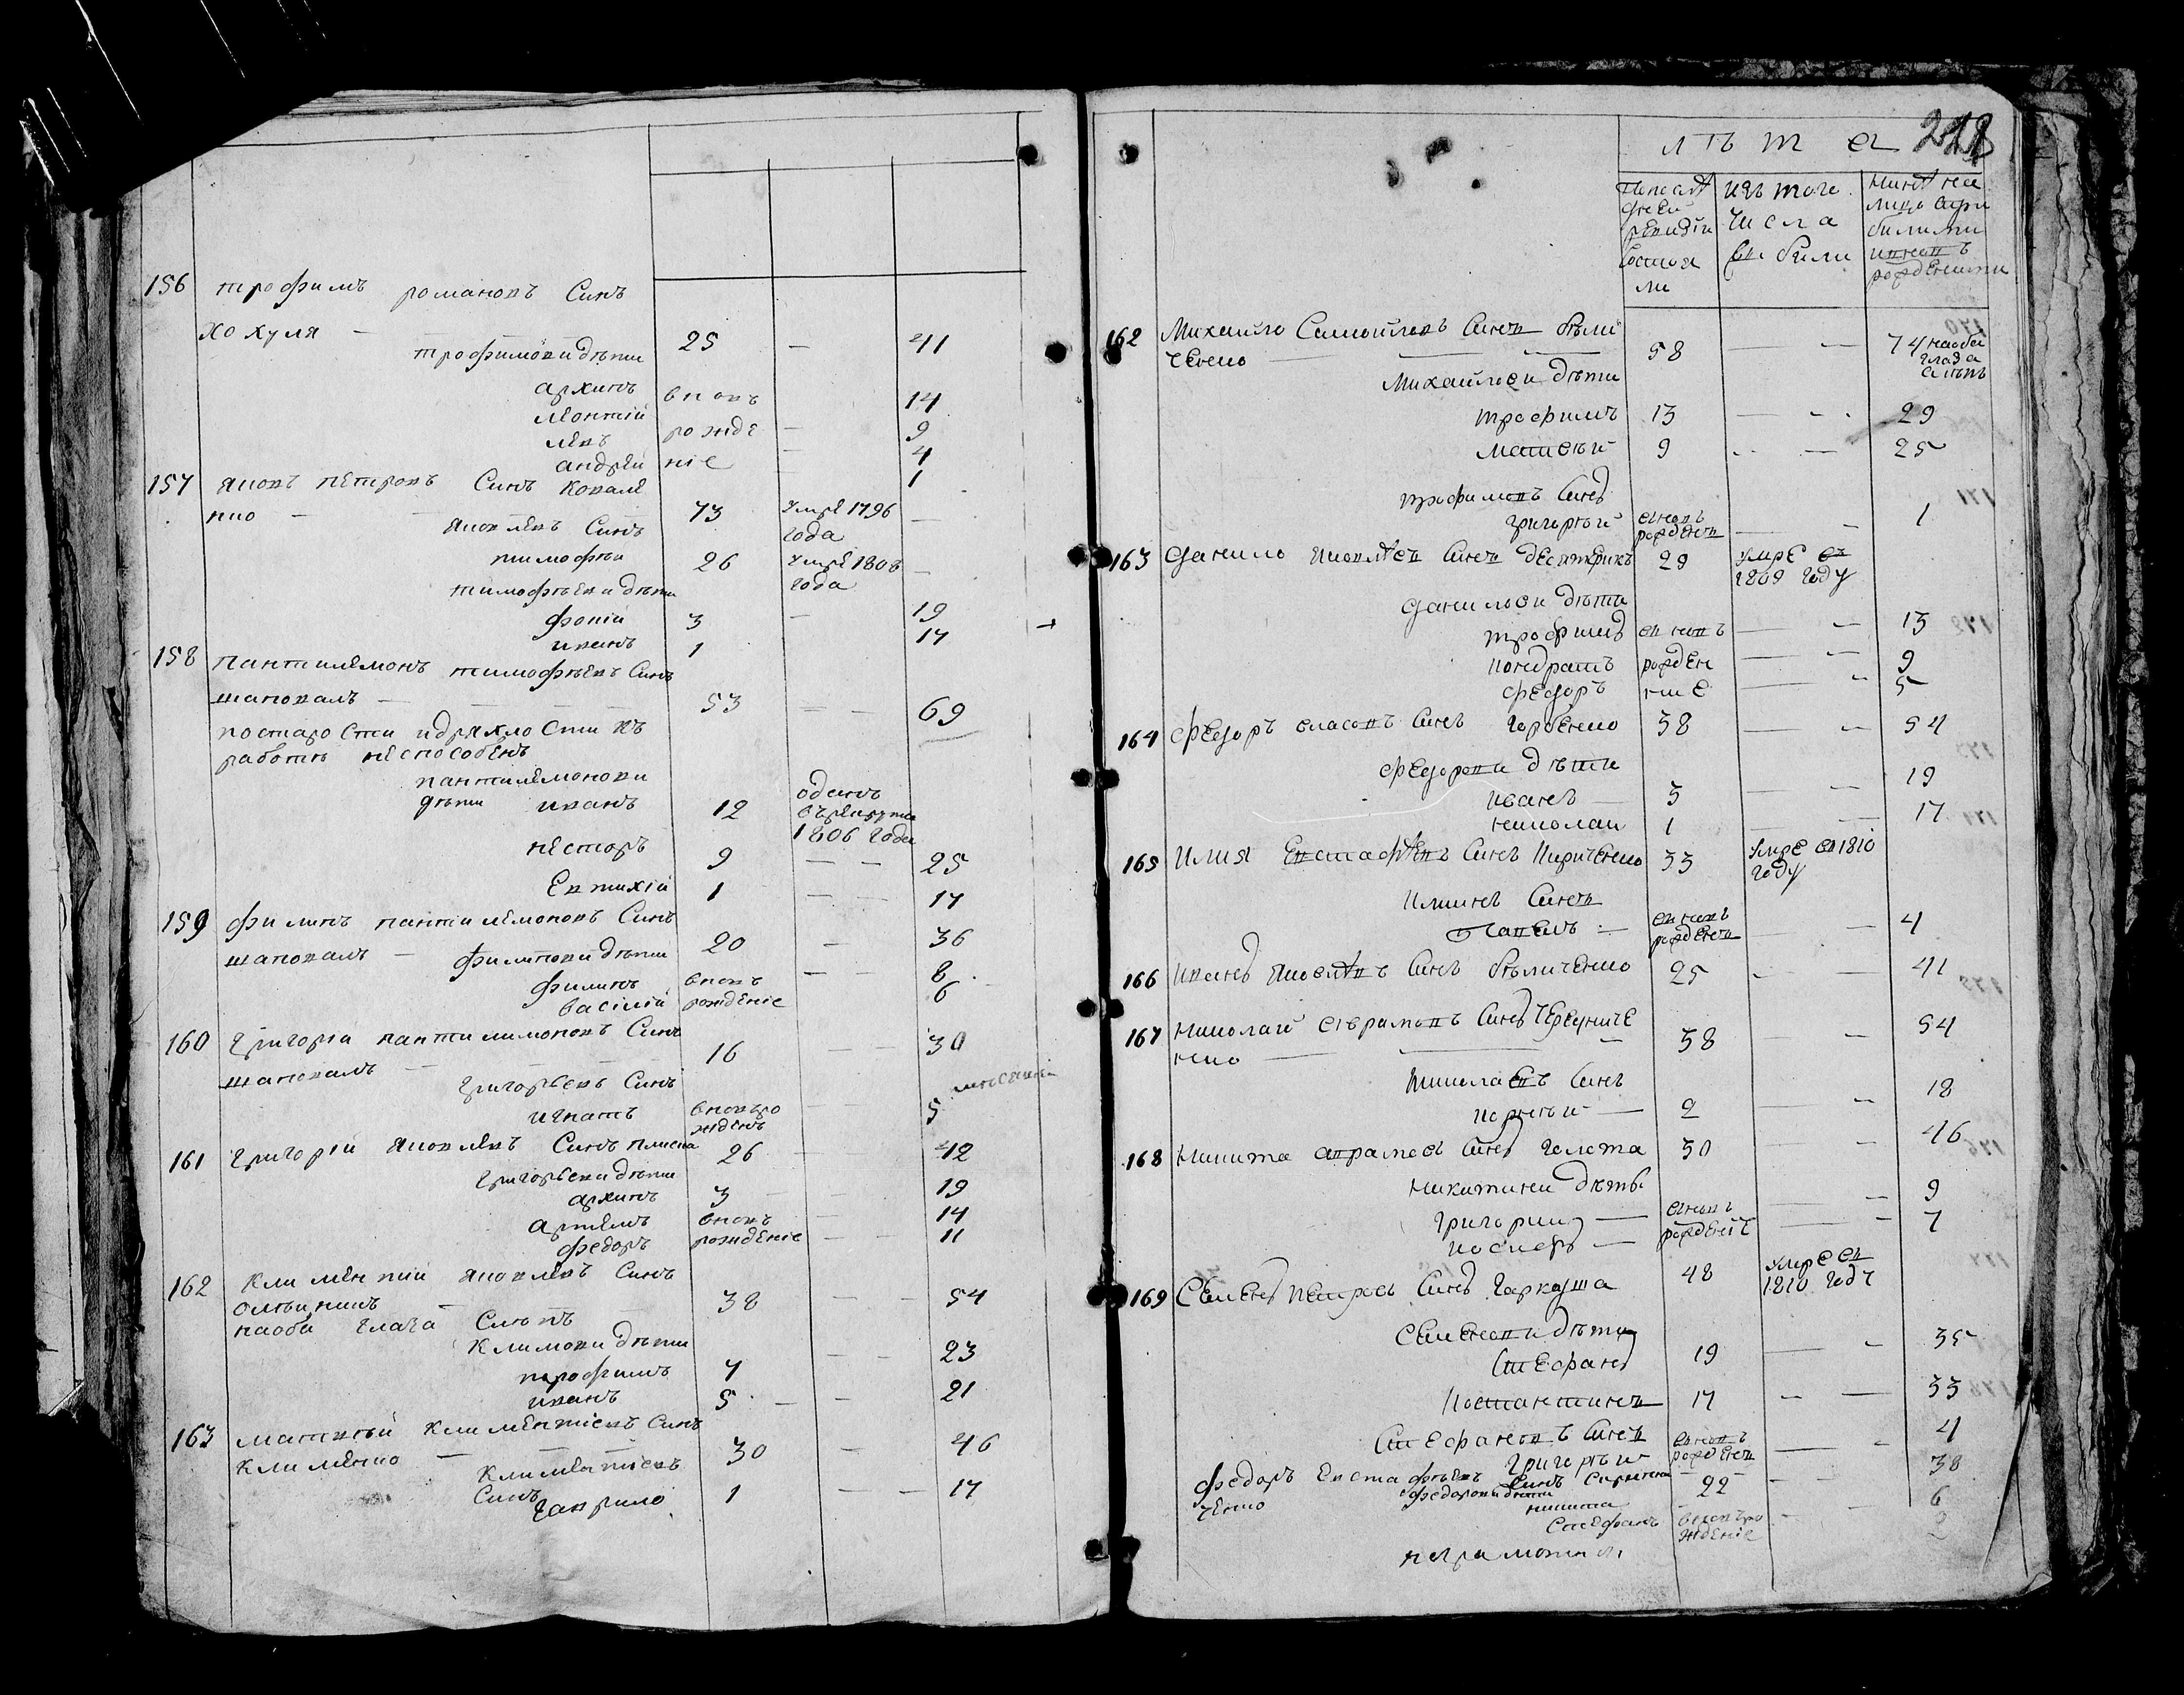 156 трофимъ романовъ Синъ
хохуля — 25 — 41
трофимови дѣти
архипъ вновъ 14
леонтій рожде — 9
левъ ніе — 4
андрей 1
157 яковъ петровъ Синъ ковале
нко — — 73 умре 1796 года —
яковлевъ Синъ
тимофѣй 26 умре 1808 года —
тимофѣеви дѣти
фотій 3 — 19
иванъ 1 17
158 пантилемонъ тимофѣевъ Синъ
шаповалъ — 53 — — 69
постарости идряхлости къ
работѣ неспособенъ
пантилемонови
дѣти иванъ 12 оданъ
въ рекрути
1806 года
несторъ 9 — — 25
Евтихій 1 — — 17
159 филипъ пантилемоновъ Синъ
шаповалъ — 20 — 36
филипови дѣти
филипъ вновъ — — 8
василій рожденіе 6
160 григорій пантилимоновъ Синъ
шаповалъ — 16 — — 30
григорьевъ Синъ
игнатъ вновъ ро
жденъ — 5
161 григорій яковлевъ Синъ 26 — 42
григорьеви дѣти
архипъ 3 — 19
артемъ вновъ — 14
федоръ рожденіе — — 11
162 климентій яковлевъ Синъ
38 — — 54
наоба глаза Слѣпъ
климови дѣти
трофимъ 7 — — 23
иванъ 5 — — 21
163 матвѣй климентіевъ Синъ
клименко — 30 — 46
климентіевъ
Синъ гаврило 1 — — 17
лѣта
попослѣ
дней
ревизіи
состоя
ли
изъ того
числа
вибили
нинѣ на
лицо
билими
ивновъ
рожденними
162 Михайло Самойловъ Синъ бѣли
ченко — — 58 — — 74 наоба
глаза
слѣпъ
Михайлови дѣти
трофимъ 13 — - - 29
матвѣй 9 - - — 25
трофимовъ Синъ
григорій вновъ
рожденъ — — 1
163 данило яковлевъ Синъ дегтярикъ 29 умре въ
1809 году
данилови дѣти
трофимъ вновъ — — 13
кондратъ рожден — — 9
федоръ ние — — 5
164 федоръ власовъ Синъ горбенко 38 — — 54
федорови дѣти
иванъ — 3 — — 19
николай 1 — — 17
165 илия Евстафѣевъ Синъ Кириченко 33 умре въ 1810
году
илиинъ Синъ
павелъ — вновъ
рожденъ — — 4
166 иванъ яковлевъ Синъ бѣличенко 25 - — 41
167 николай аврамовъ Синъ
нко — — — 38 — — 54
николаевъ Синъ
корнѣй — 2 — — 18
168 никита Синъ гелета 30 — — 46
никитини дѣти
григорий — вновъ — — 9
иосифъ — рожденіе — — 7
169 Семенъ петровъ Синъ гаркуша 48 умре въ
1810 году
Семенови дѣти
Стефанъ 19 — - 35
Костантинъ 17 — — 33
Стефановъ Синъ
григорій вновъ
рожденъ — - 4
федоръ Евстафѣевъ Синъ
ченко 22 — 38
федорови дѣти
никита 6
Стефанъ вновъ ро
ждение — 2